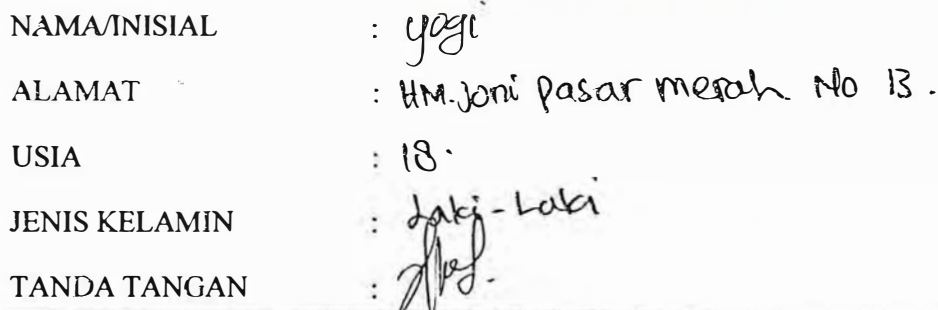 NAMA/INISIAL : yogi
ALAMAT : HM.Joni pasar merah No 13.
USIA : 18.
JENIS KELAMIN : Laki-Laki
TANDA TANGAN :